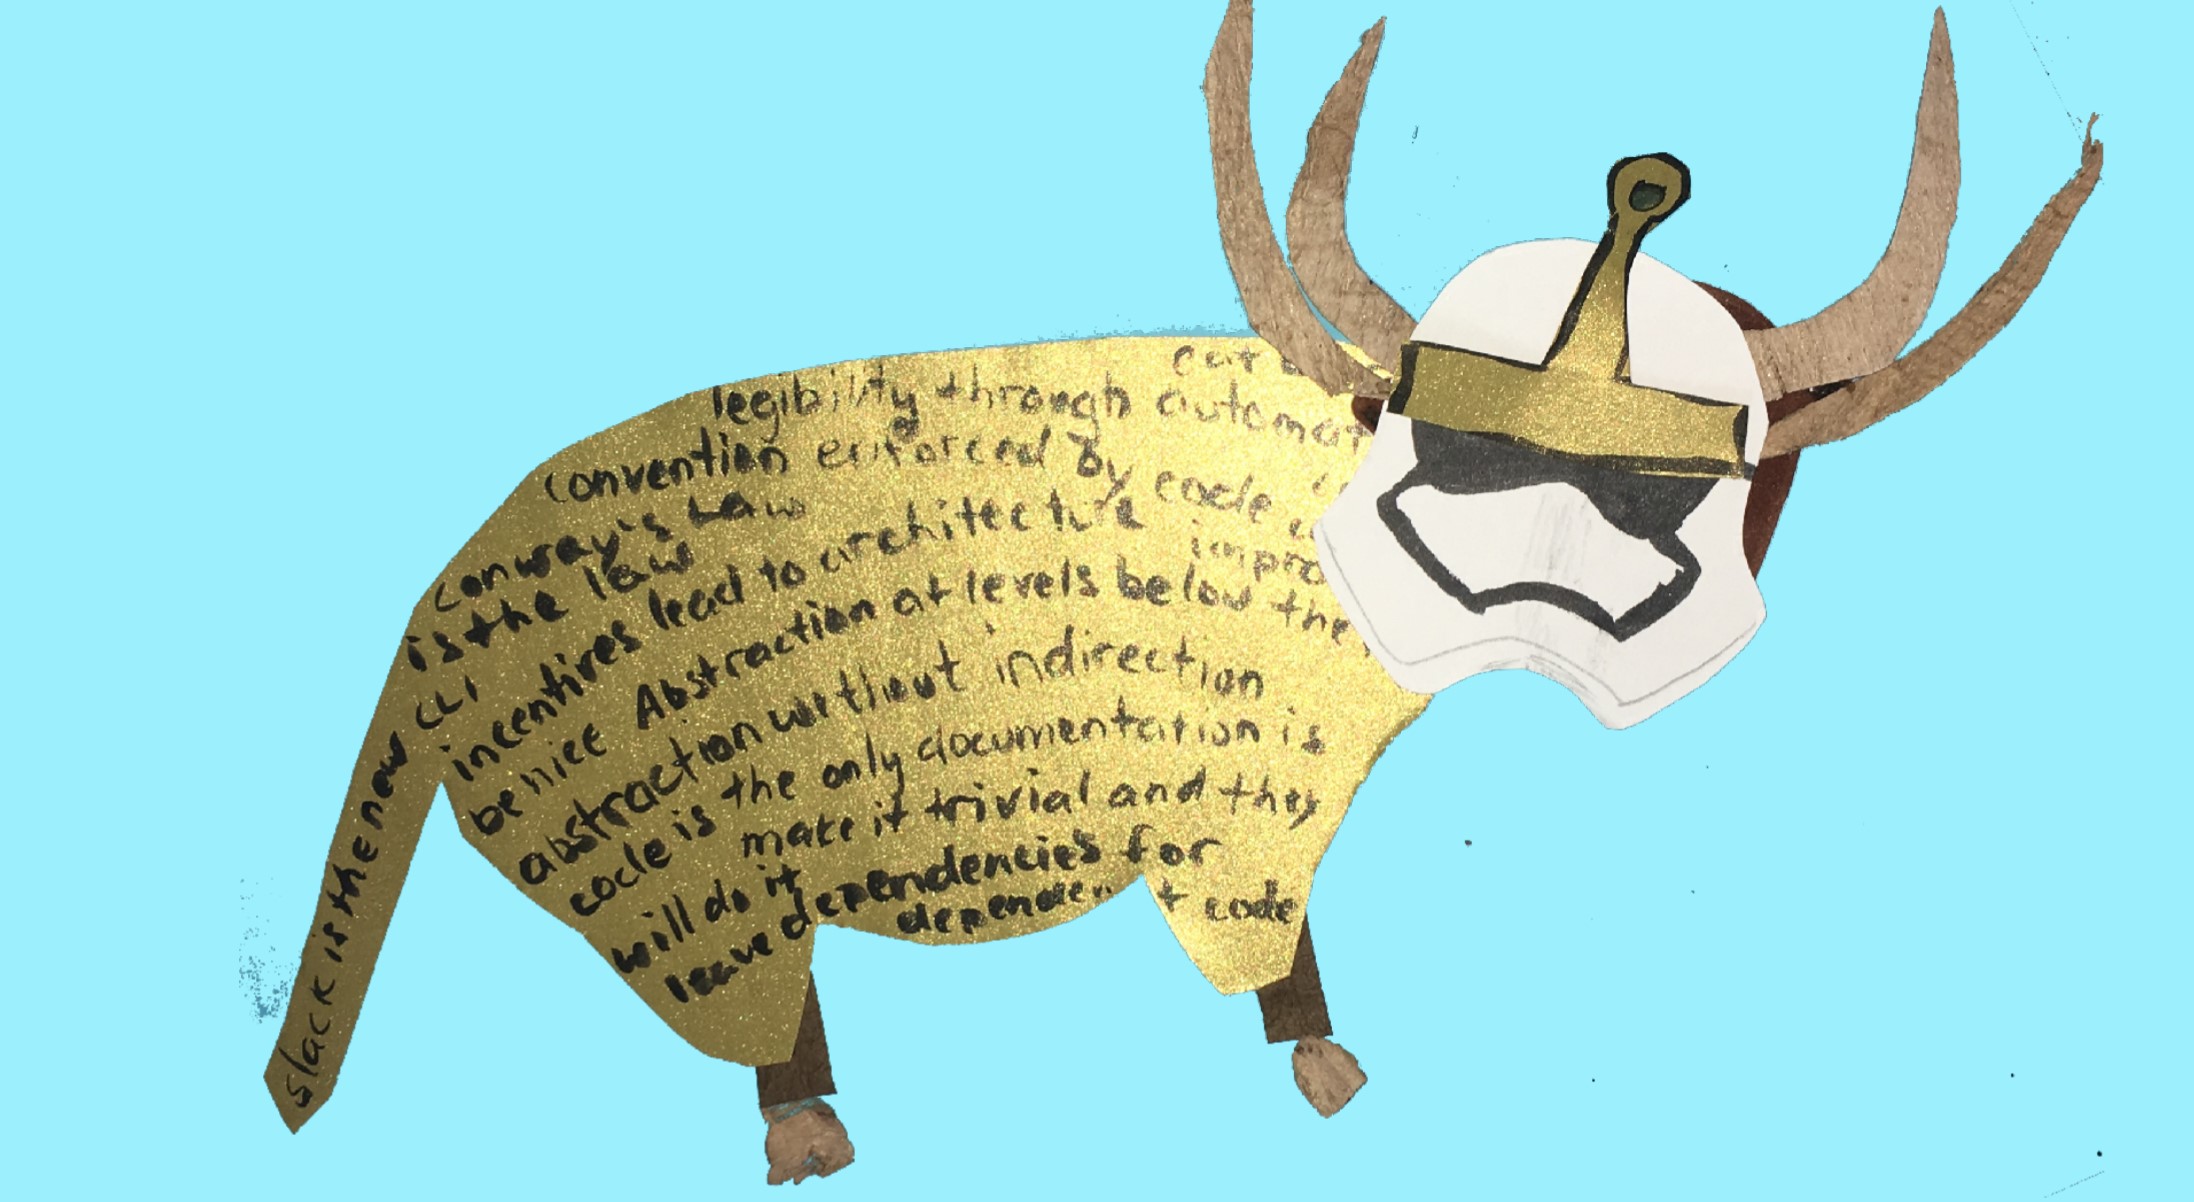 eat
legibility through automat
convention enforced by code
conway's Law
is the law
improv
incentives lead to architecture
be nice Abstraction at levels below the
abstraction without indirection
code is the only documentation is
make it trivial and they
will do it
leave dependencies for
dependen t code
slack is the new CLI